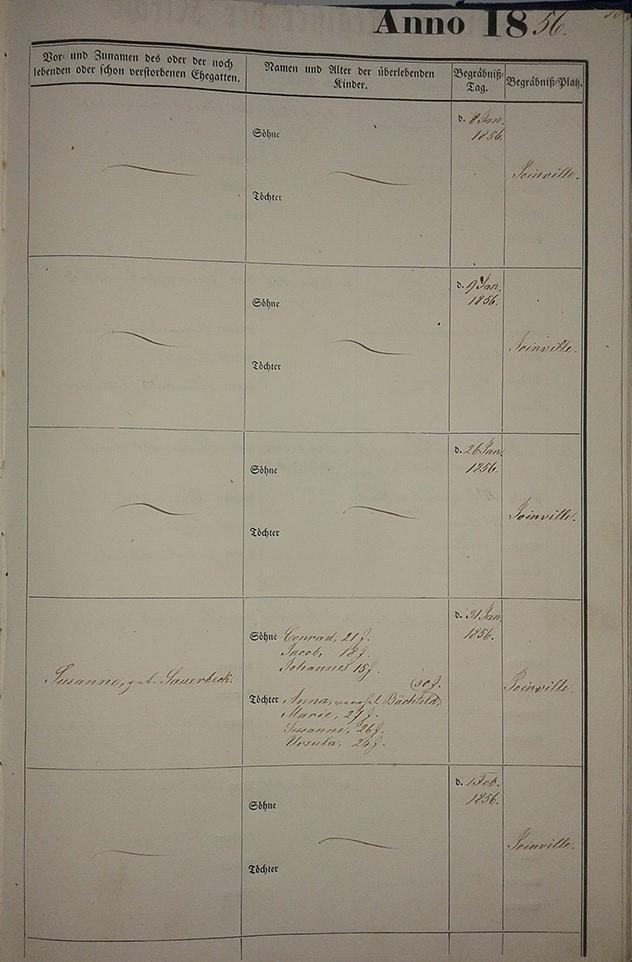 Anno 1856.
Vor- und Zunamen des oder der noch
lebenden oder schon verstorbenen Ehegatten.
Namen und Alter der überlebenden
Kinder.
Begräbniß-
Tag.
Begräbniß-Platz.
Söhne
Töchter
d. 8 Jan.
1856.
Joinville.
Söhne
Töchter
d. 9 Jan.
1856.
Joinville.
Söhne
Töchter
d. 26 Jan.
1856.
Joinville.
Susanne, geb. Sauerbeck.
Söhne Conrad, 21 J.
Jacob, 18 J.
Johannes 15 J.
(30 J.
Töchter Anna, verehel. Bächtold,
Marie, 27 J.
Susanne, 26 J.
Ursula, 24 J.
d. 31 Jan.
1856.
Joinville.
Söhne
Töchter
d. 1 Feb.
1856.
Joinville.